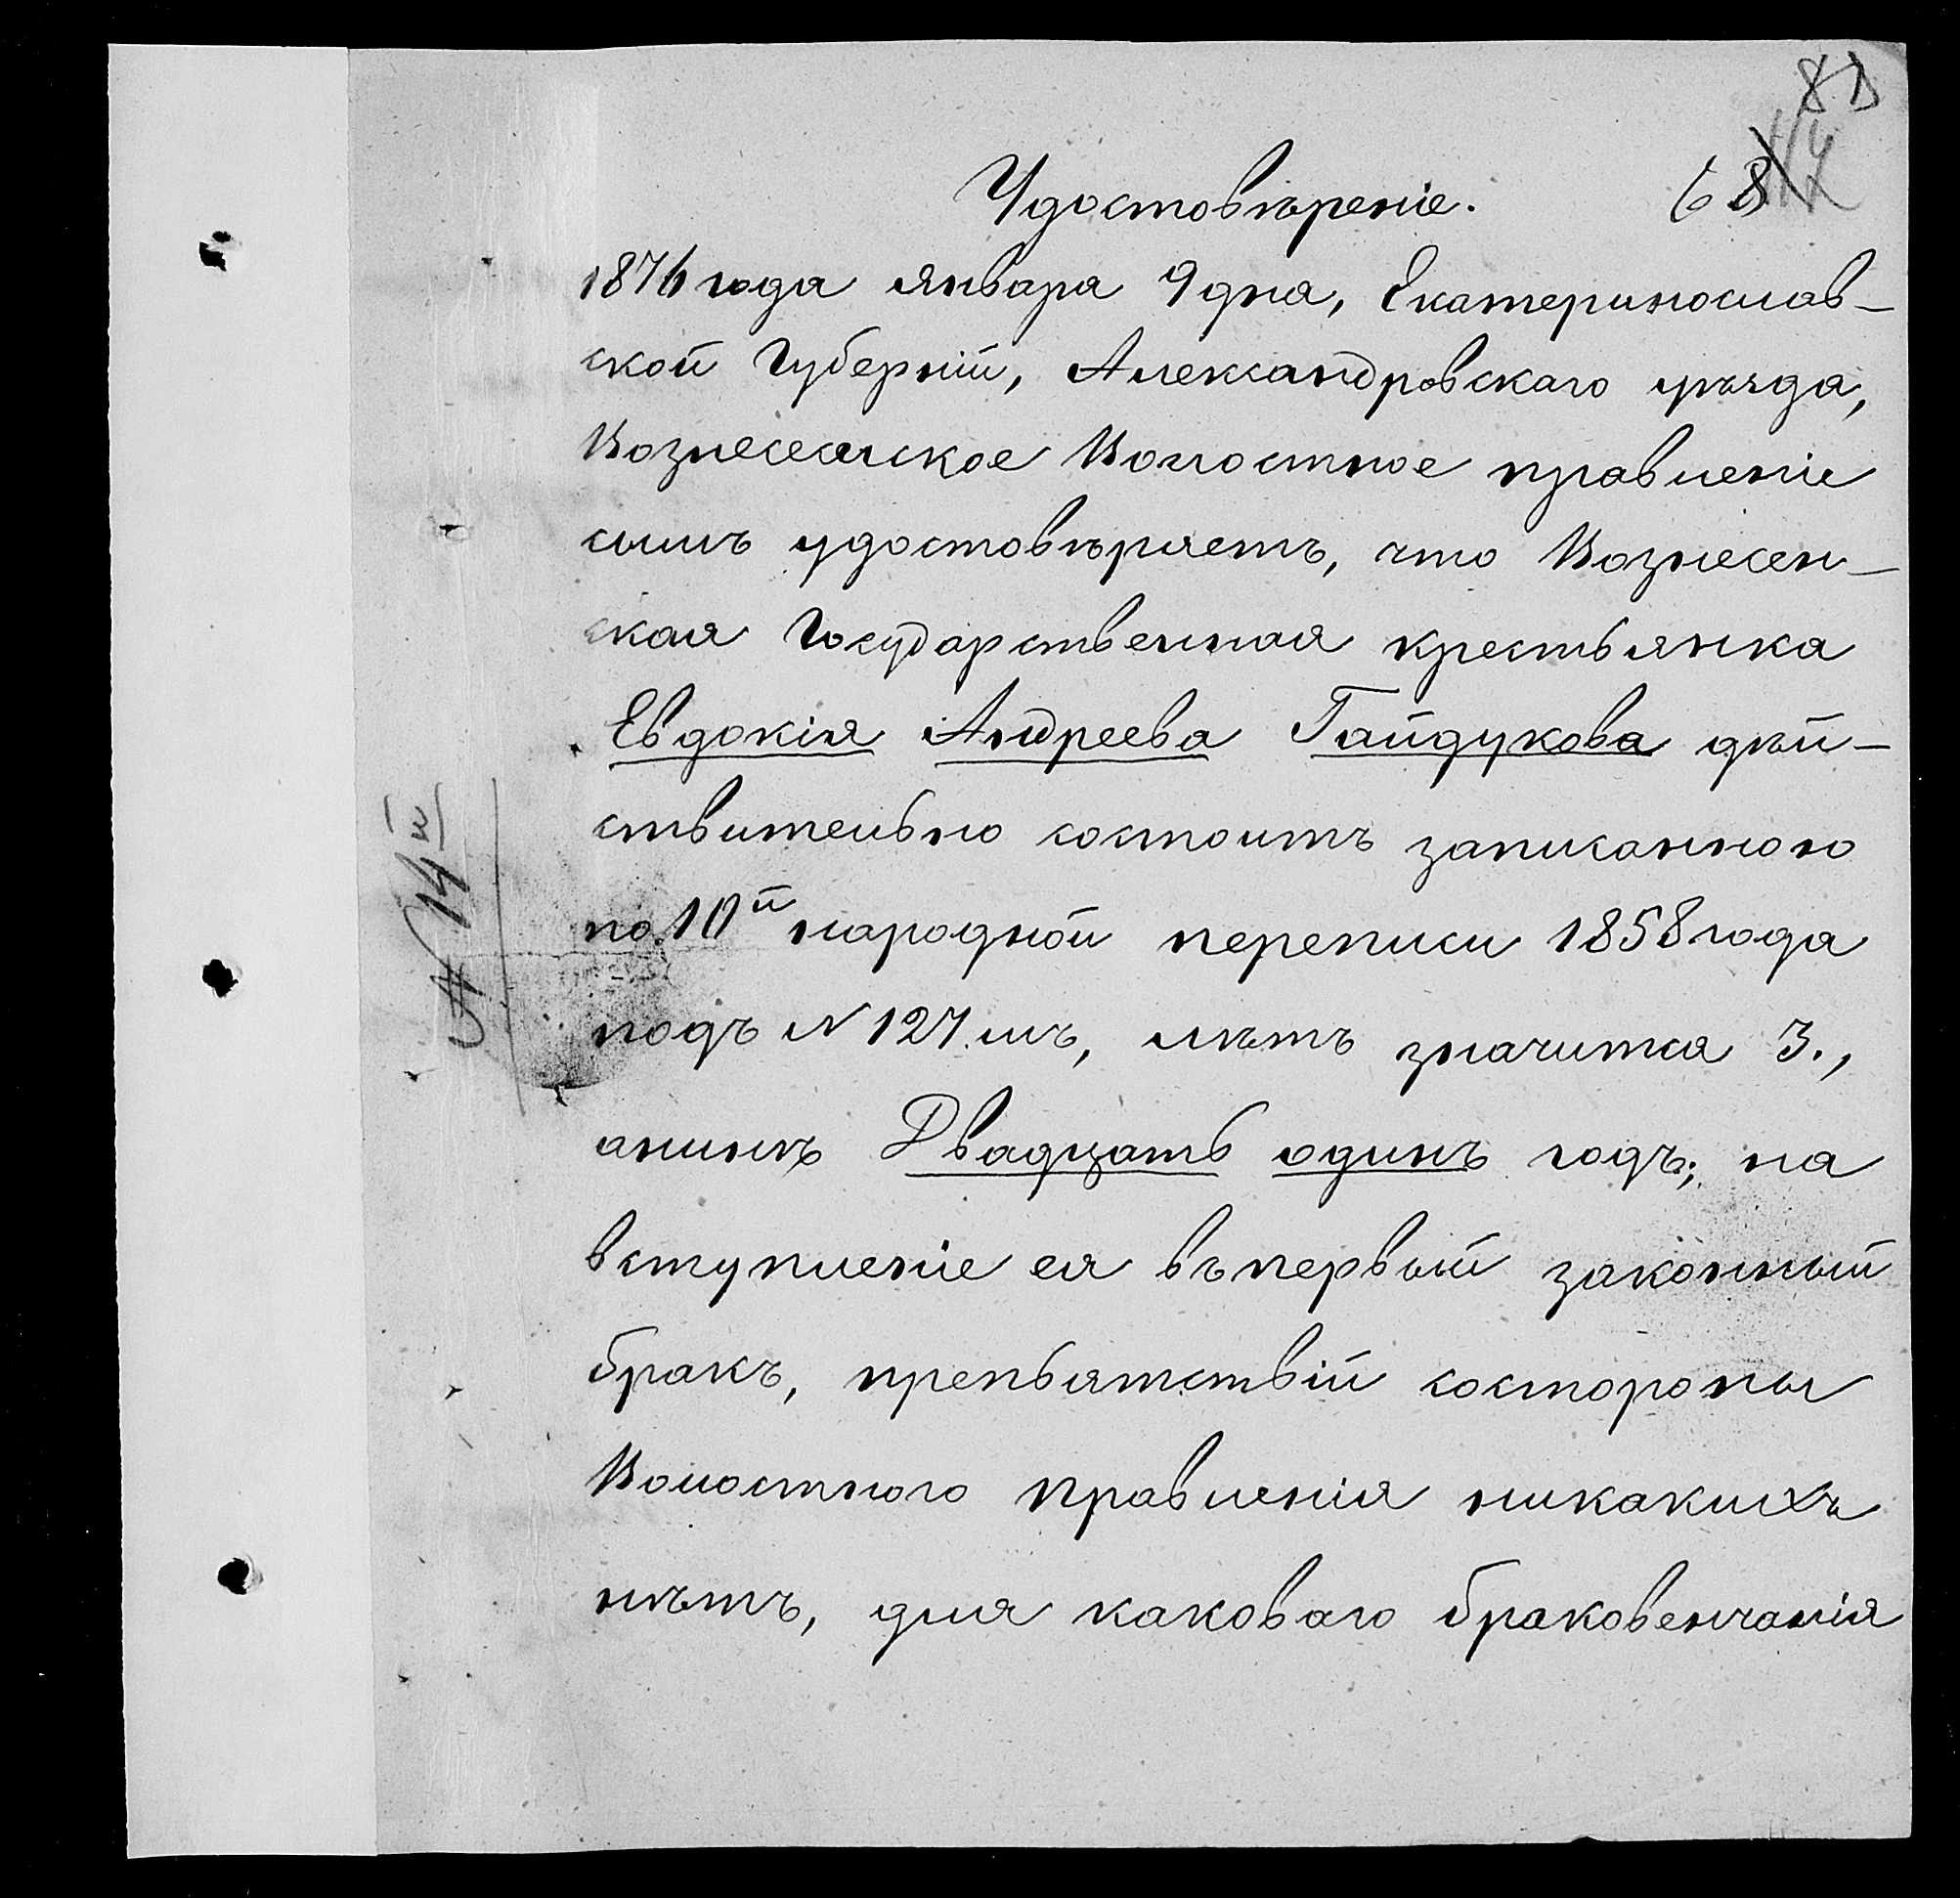 Удостовѣреніе.
68
1876 года января 9 дня, Екатеринослав-
ской Губерніи, Александровскаго уѣзда,
Вознесенское Волостное правленіе
симъ удостовѣряетъ, что Вознесен-
ская Государственная крестьянка
Евдокія Андреева Гайдукова дѣй-
ствительно состоитъ записанною
по 10й народной переписи 1858 года
подъ № 127 мъ, лѣтъ значится 3.,
анинѣ Двадцать одинъ годъ; на
вступленіе ея въ первый законный
бракъ, препьятствій состороны
Волостного правленія никакихъ
нѣтъ, для каковаго браковенчанія
№ 14й